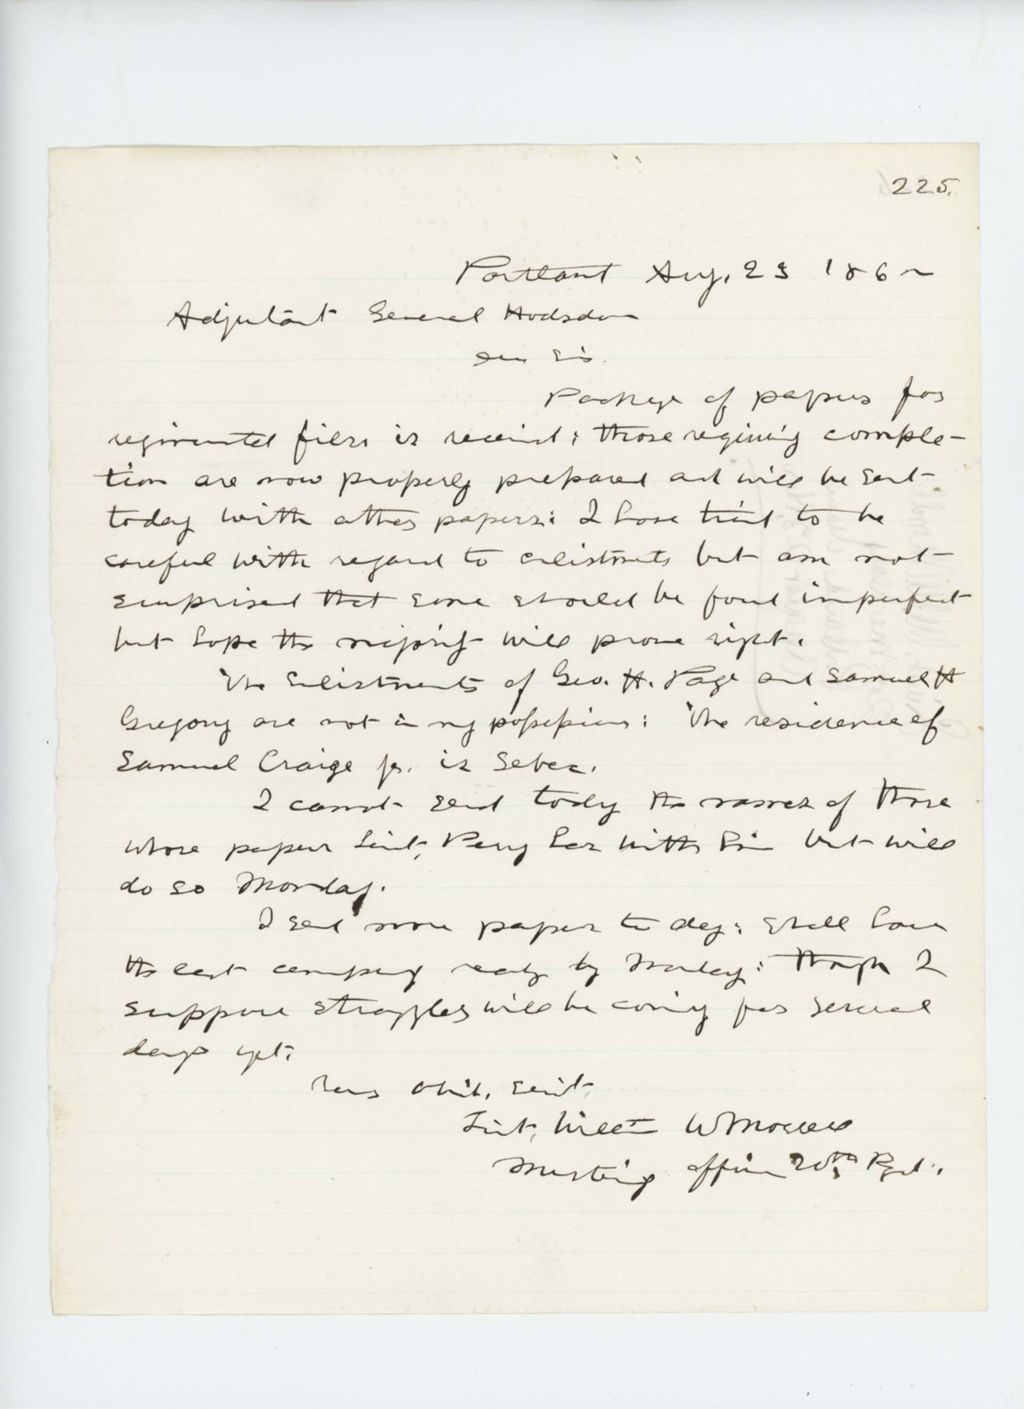 225.
Portland Aug. 23 1862
Adjutant General Hodsdon
Dear Sir.
Package of papers for
regimental files is received; those requiring comple-
tion are now properly prepared and will be sent
today with other papers: I have tried to be
careful with regard to enlistments but am not
surprised that some should be found imperfect
but hope the majority will prove right.
The Enlistments of Geo. H. Page and Samuel H
Gregory are not in my possession: The residence of
Samuel Craige jr. is Sebec.
I cannot send today the names of those
whose papers Lieut. Perry has with him but will
do so Monday.
I send more papers to day: shall have
the last company ready by Monday: though I
suppose stragglers will be coming for several
days yet.
Your Obdt. Servt.
Lieut.
Mustering officer 20th Regt.